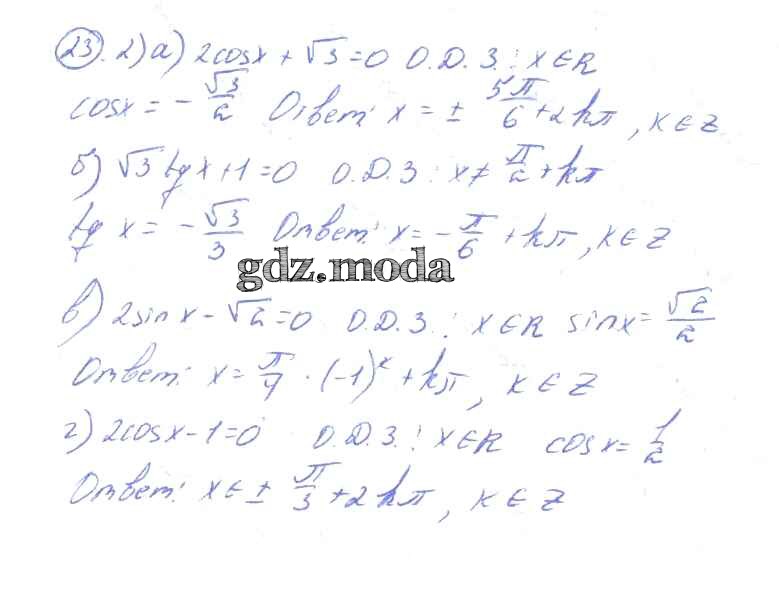 23. 2) а) 2cosx + √3 = 0 О.Д.З.: x ∈ R
cosx = -√3/2 Ответ: x = ± 5π/6 + 2kπ, k ∈ Z
б) √3 tg x + 1 = 0 О.Д.З: x ≠ π/2 + kπ
tg x = -√3/3 Ответ: x = -π/6 + kπ, k ∈ Z
gdz.moda
в) 2sin x - √2 = 0 О.Д.З.: x ∈ R sinx = √2/2
Ответ: x = π/4 · (-1)^k + kπ, k ∈ Z
г) 2cosx - 1 = 0 О.Д.З.: x ∈ R cos x = 1/2
Ответ: x ∈ ± π/3 + 2kπ, k ∈ Z